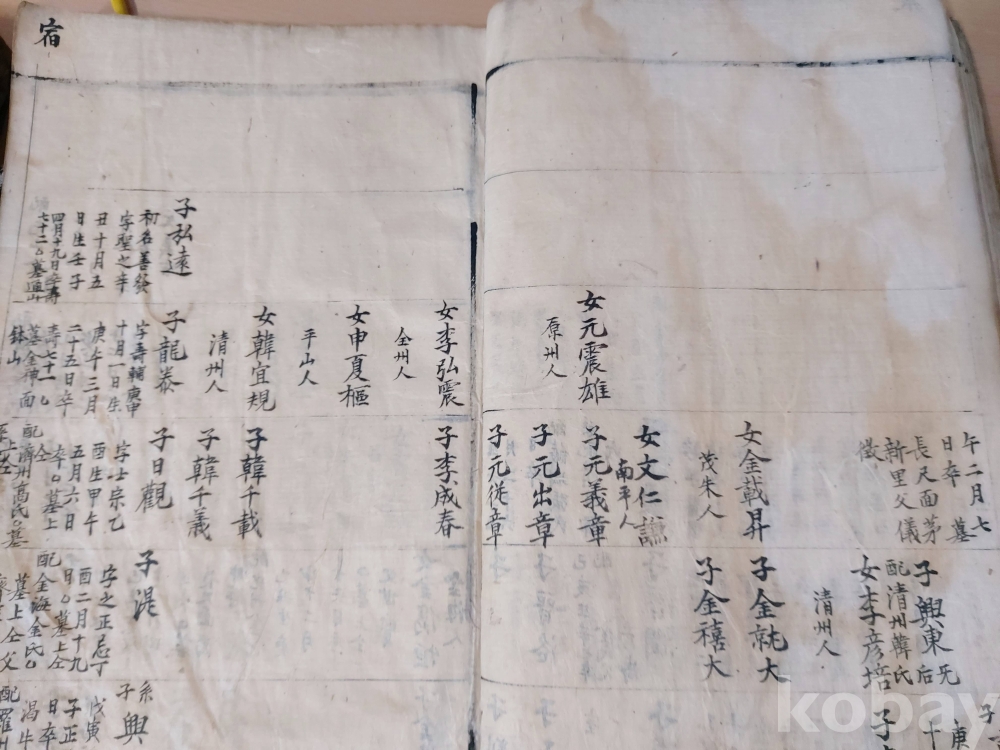 女元震雄
原州人
午二月七
日卒 墓
長尺面茅
新里父儀
徵
女金載昇
茂朱人
女文仁謙
南平人
子元義章
子元出章
子元従章
子興東
旡后
配清州韓氏
女李彦培
清州人
子金就大
子金禧大
宿
子弘遠
初名善
字聖之辛
丑十月五
日生壬子
四月十九日卒壽
七十二墓山
女李弘震
仝州人
女申夏樞
平山人
女韓宜規
清州人
子龍泰
字壽輔庚申
十月一日生
庚午三月
二十五日卒
壽七十一
墓金神面
鉢山
子李成春
子韓千載
子韓千義
子日觀
字士宗乙
酉生甲午
五月六日
卒 墓上
仝
配濟州高氏墓
子湜
字之正忌丁
酉二月十九
日 墓上仝
配金海金氏
墓上仝父
系子興
戊寅
子正
日卒
渴牛
配羅
kobay